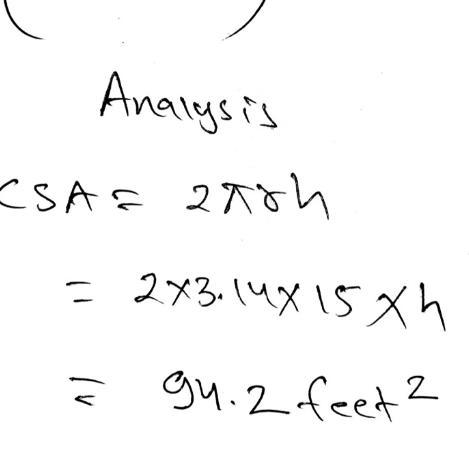 Analysis
CSA = 2πrh
= 2×3.14×15×h
= 94.2 feet²